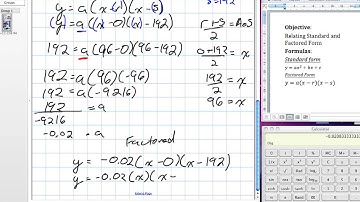 y = a(x-r)(x-s)
y = a(x-0)(x-192)
192 = a(96-0)(96-192)
192 = a(96)(-96)
192 = a(-9216)
192 = a
-9216
-0.02 = a
Factored
y = -0.02(x-0)(x-192)
y = -0.02(x)(x-
r+s = AoS
2
0+192 = x
2
192 = x
2
96 = x
Objective:
Relating Standard and
Factored Form
Formulas:
Standard form
y = ax² + bx + c
Factored Form
y = a(x − r)(x − s)
Calculator